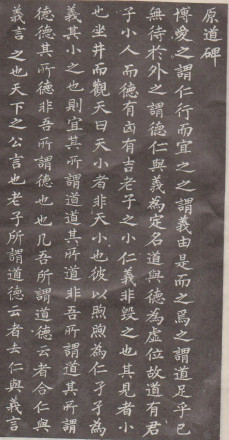 原道碑
博愛之謂仁行而宜之之謂義由是而之焉之謂道足乎己
無待於外之謂德仁與義為定名道與德為虛位故道有君
子小人而德有凶有吉老子之小仁義非毀之也其見者小
也坐井而觀天曰天小者非天小也彼以煦煦為仁孑孑為
義其小之也則宜其所謂道道其所道非吾所謂道其所謂
德德其所德非吾所謂德也也凡吾所謂道德云者合仁與
義言之也天下之公言也老子所謂道德云者去仁與義言